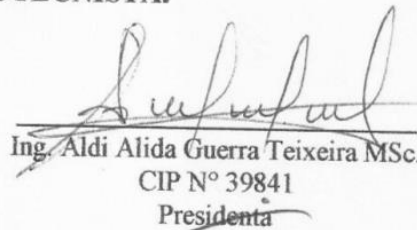 Ing. Aldi Alida Guerra Teixeira MSc.
CIP N° 39841
Presidenta